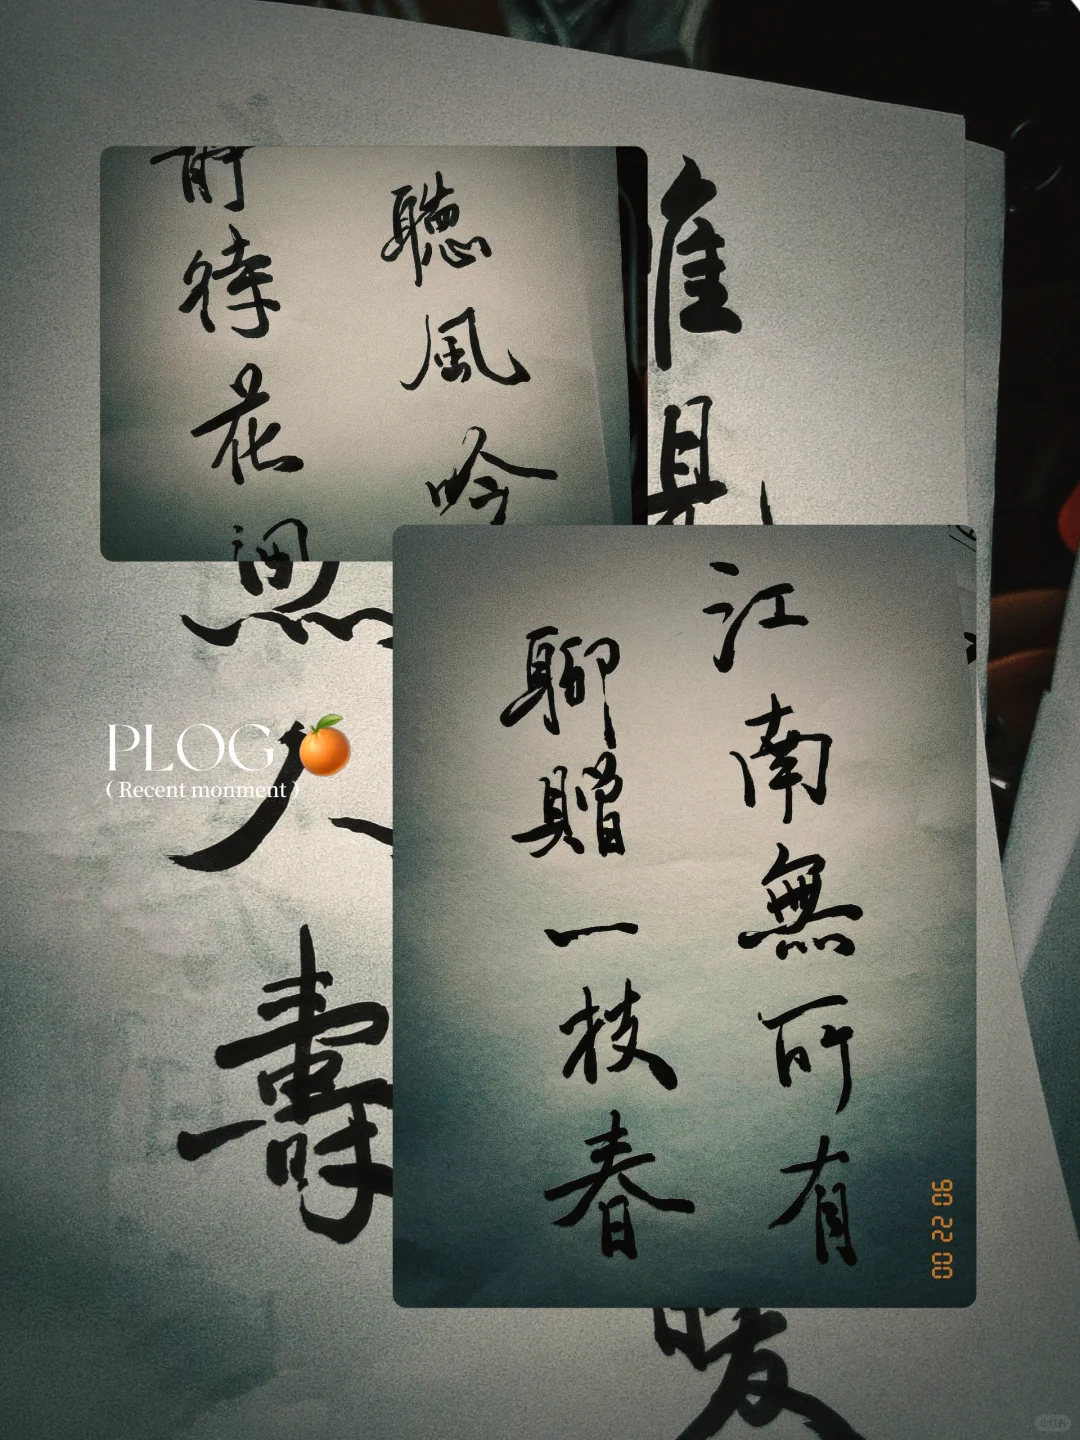 聽風吟
前待花
江南無所有
聊贈一枝春
見
暖
人壽
PLOG
( Recent monment )
00 22 06